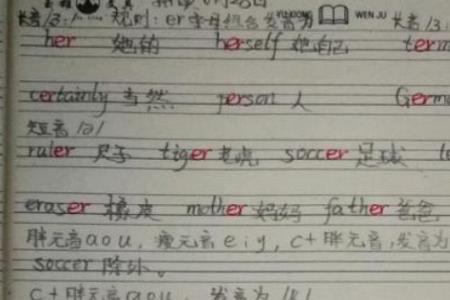 长音/ɜː/ 规则：er字母组合发音为 WEN JU 长音/ɜː
her 她的 herself 她自己 term
certainly 当然 person 人 Germ
短音/ə/
ruler 尺子 tiger 老虎 soccer 足球
eraser 橡皮 mother 妈妈 father 爸爸
胖元音a o u, 瘦元音e i y, c+胖元音,发音为
soccer 除外。
c+胖元音a o u, 发音为/k/